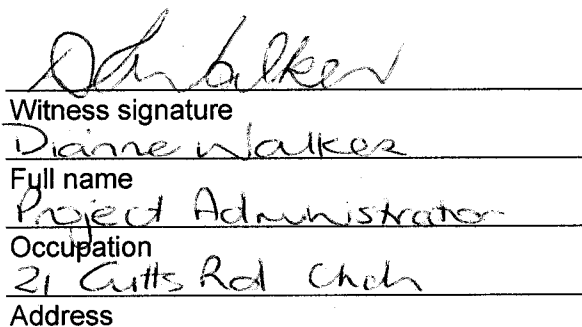 Walker
Witness signature
Dianne Walker
Full name
Project Administrator
Occupation
21 Cutts Rd Chch
Address